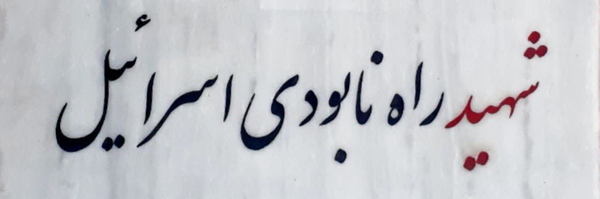 شهید راه نابودی اسرائیل